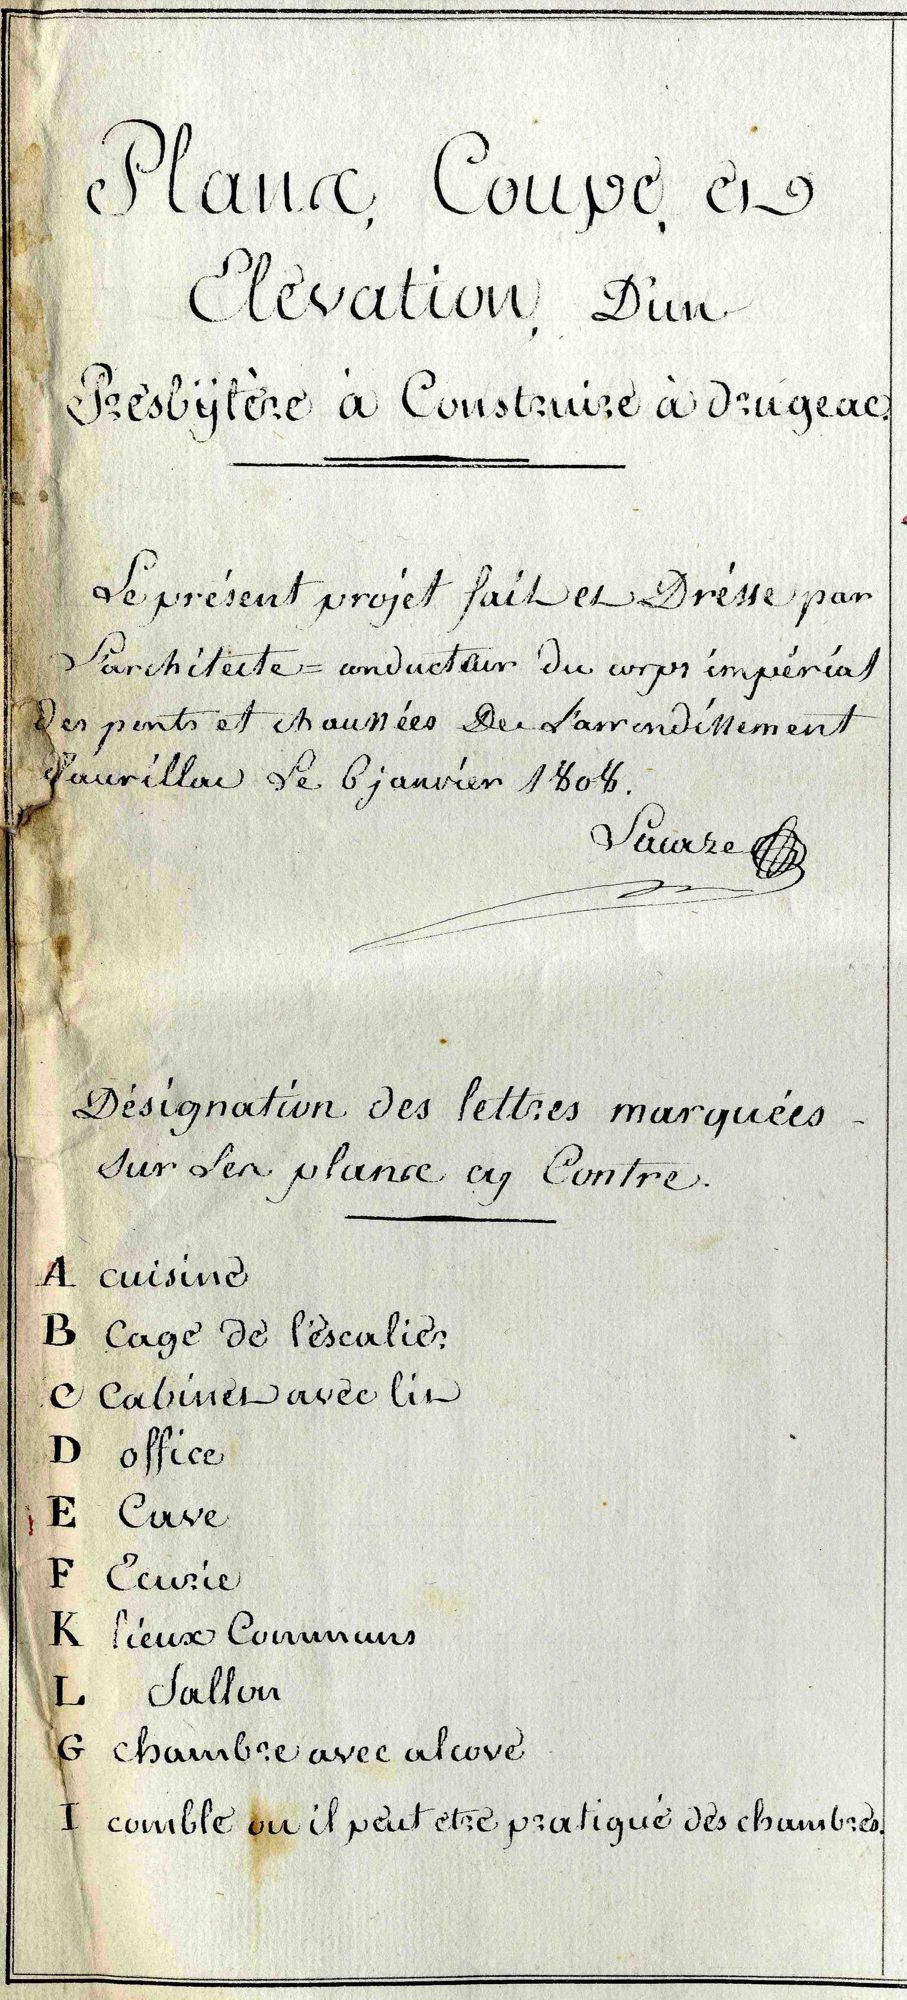 Planx, Coupe, et
Elévation, D'un
Presbÿtère à Construire à drugeac.
Le présent projet fait et Drésse par
L'architecte = conducteur du corps impérial
des ponts et chaussées De L'arrondissement
d'aurillac Le 6 janvier 1808.
Désignation des lettres marquées
sur Les planx cy Contre.
A cuisine
B Cage de l'éscalier
C Cabinet avec lit
D office
E Cave
F Ecurie
K lieux Communs
L Sallon
G chambre avec alcove
I comble ou il peut etre pratiqué des chambres.